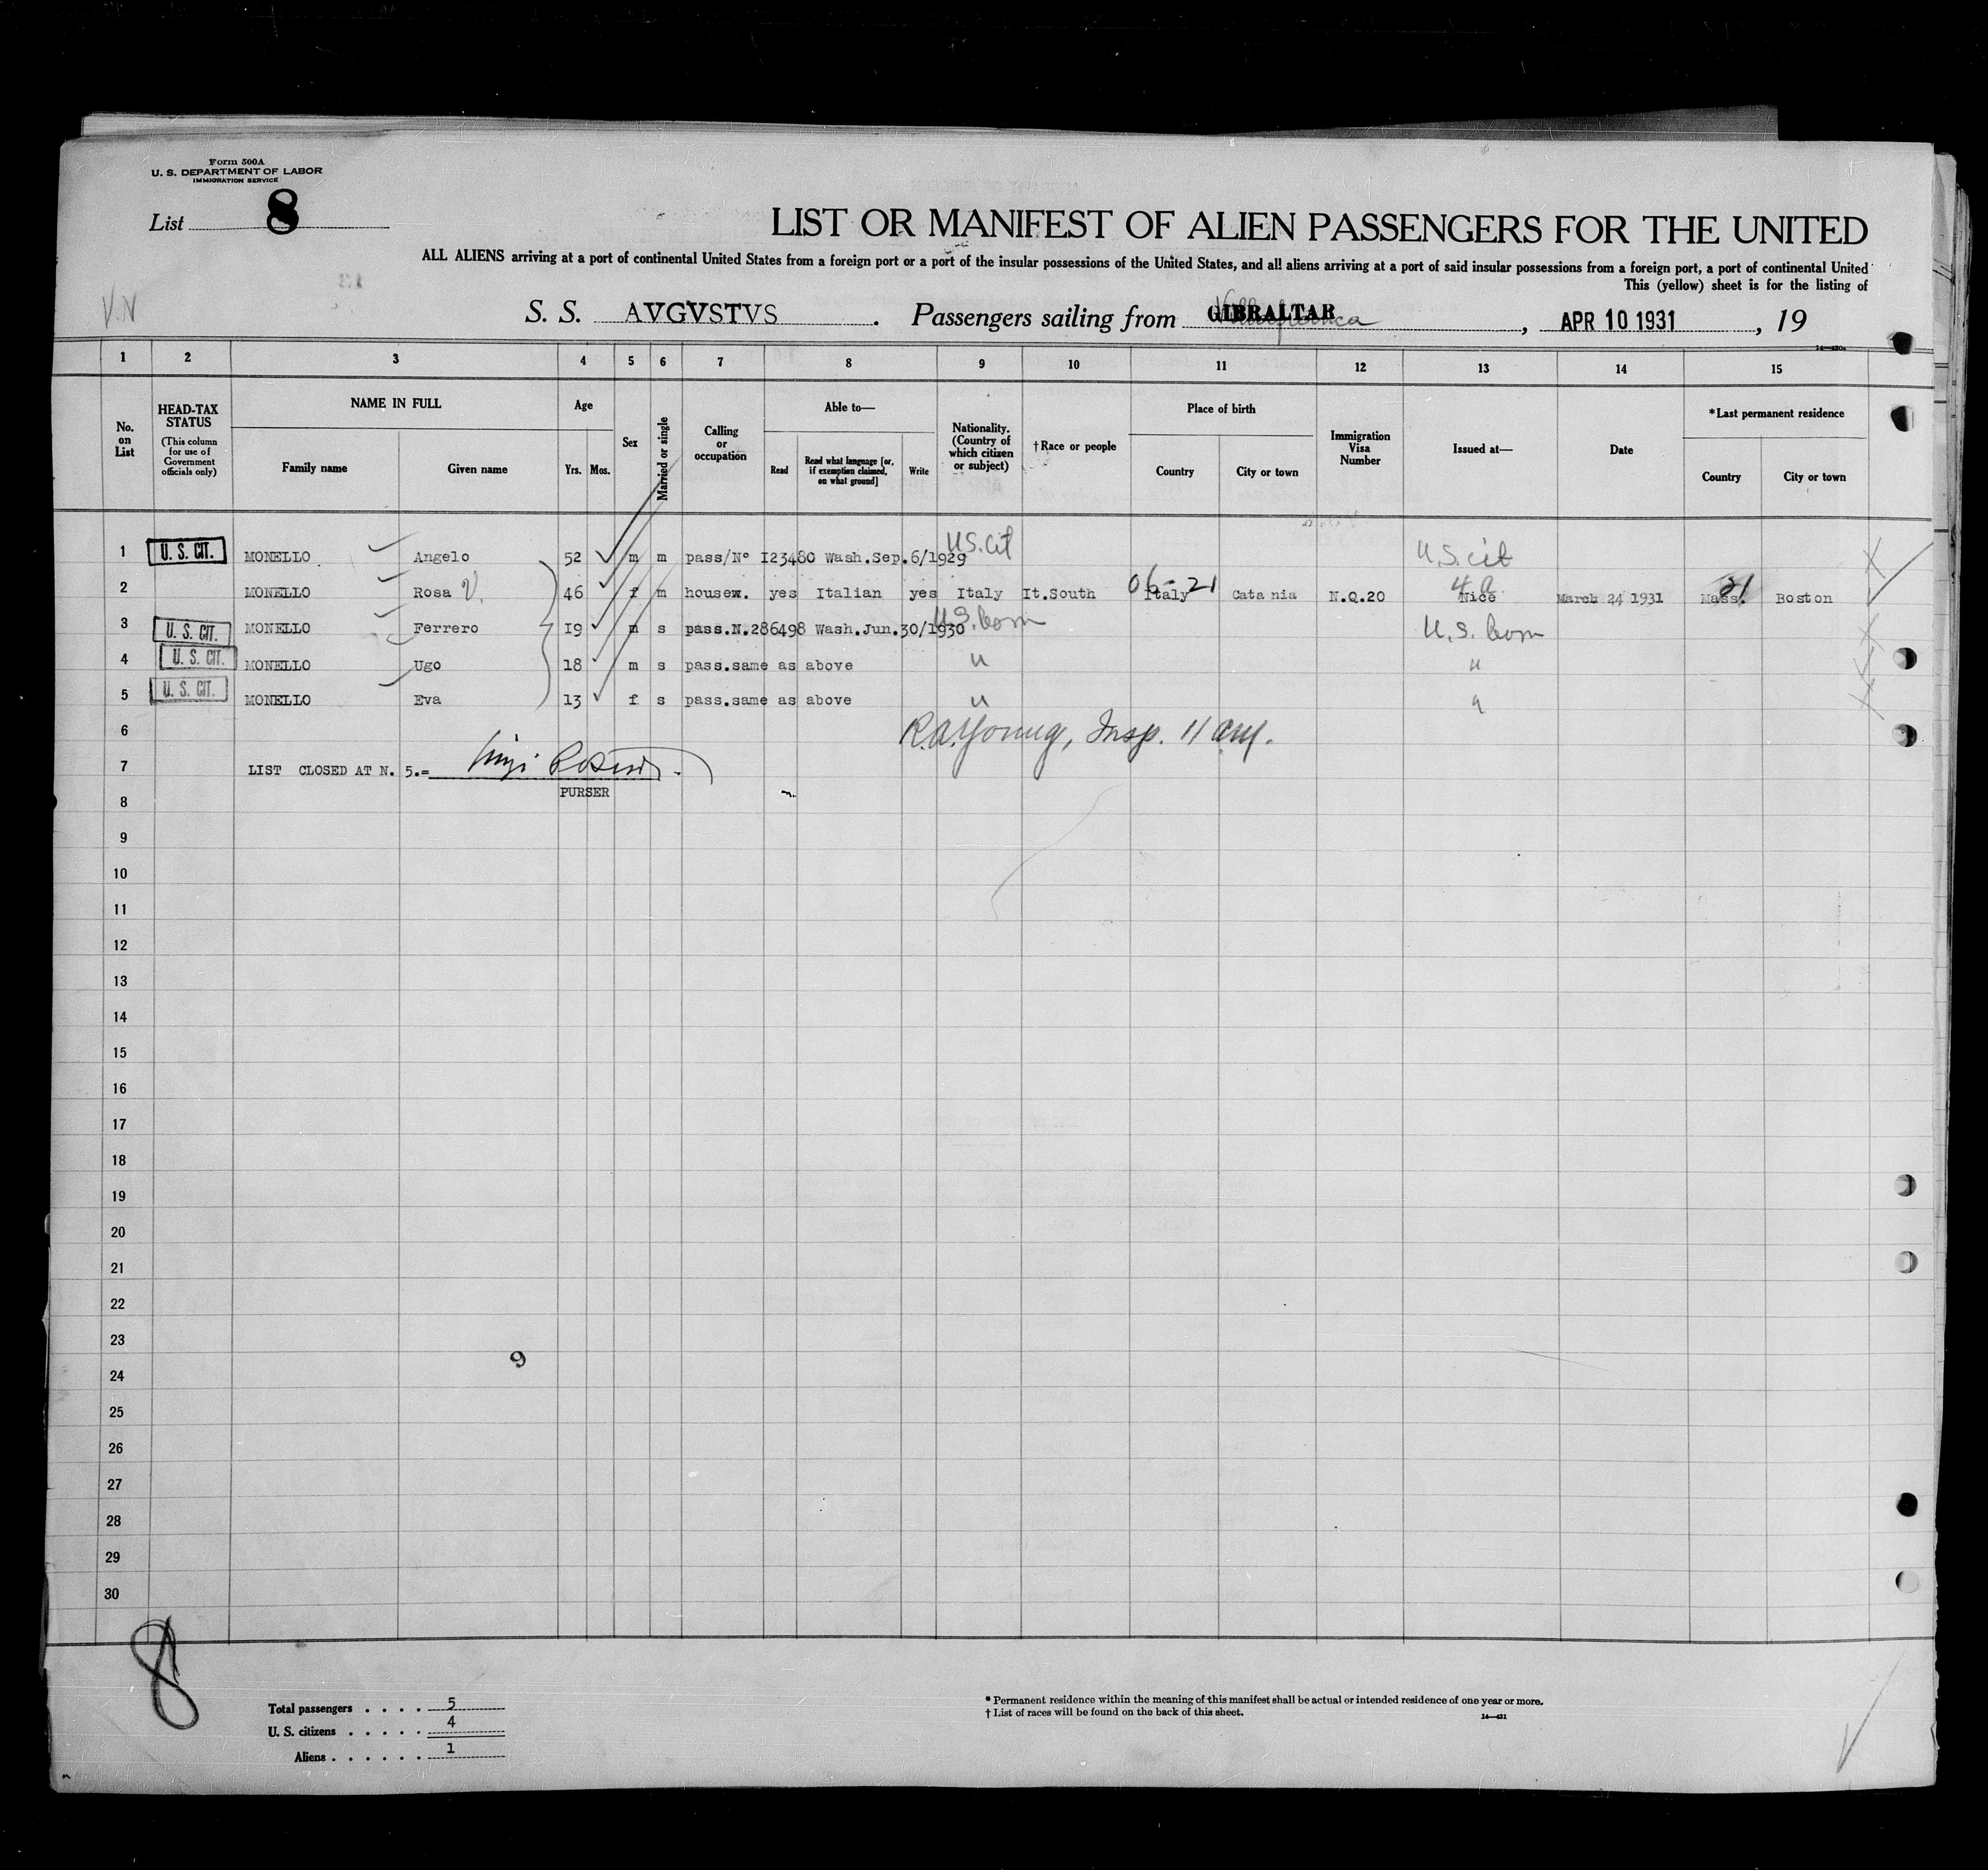 Form 500A
U. S. DEPARTMENT OF LABOR
IMMIGRATION SERVICE
List 8
LIST OR MANIFEST OF ALIEN PASSENGERS FOR THE UNITED
ALL ALIENS arriving at a port of continental United States from a foreign port or a port of the insular possessions of the United States, and all aliens arriving at a port of said insular possessions from a foreign port, a port of continental United
This (yellow) sheet is for the listing of
V.N
S. S. AVGVSTVS . Passengers sailing from GIBRALTAR , APR 10 1931 , 19
1 2 3 4 5 6 7 8 9 10 11 12 13 14 15
No. on List
HEAD-TAX STATUS
(This column for use of Government officials only)
NAME IN FULL
Family name Given name
Age
Yrs. Mos.
Sex
Married or single
Calling or occupation
Able to—
Read
Read what language [or, if exemption claimed, on what ground]
Write
Nationality. (Country of which citizen or subject)
†Race or people
Place of birth
Country City or town
Immigration Visa Number
Issued at—
Date
*Last permanent residence
Country City or town
1 U. S. CIT. MONELLO Angelo 52 m m pass/N° I23480 Wash.Sep.6/1929 U.S. cit U.S. cit
2 MONELLO Rosa V. 46 f m housew. yes Italian yes Italy It.South Italy 06-21 Catania N.Q.20 Nice March 24 1931 Mass. 21 Boston
3 U. S. CIT. MONELLO Ferrero I9 m s pass.N.286498 Wash.Jun.30/1930 U.S. born U.S. born
4 U. S. CIT. MONELLO Ugo 18 m s pass.same as above " "
5 U. S. CIT. MONELLO Eva 13 f s pass.same as above " "
6 R.A. Young, Insp. 11 am.
7 LIST CLOSED AT N. 5.=
PURSER
8
9
10
11
12
13
14
15
16
17
18
19
20
21
22
23
9
24
25
26
27
28
29
30
8
Total passengers . . . . 5
U. S. citizens . . . . . 4
Aliens . . . . . . 1
* Permanent residence within the meaning of this manifest shall be actual or intended residence of one year or more.
† List of races will be found on the back of this sheet.
14—431